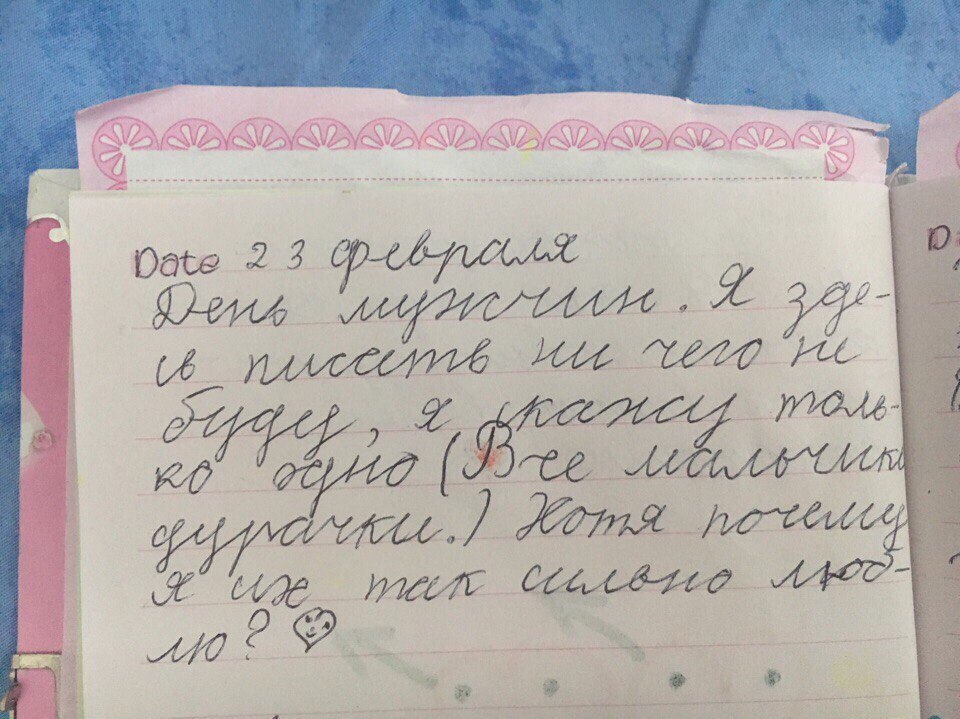 Date 23 февраля
День мужчин. Я зде-
сь писать ни чего не
буду, я скажу толь-
ко одно (Все мальчики
дурачки.) Хотя почему
я их так сильно люб-
лю?